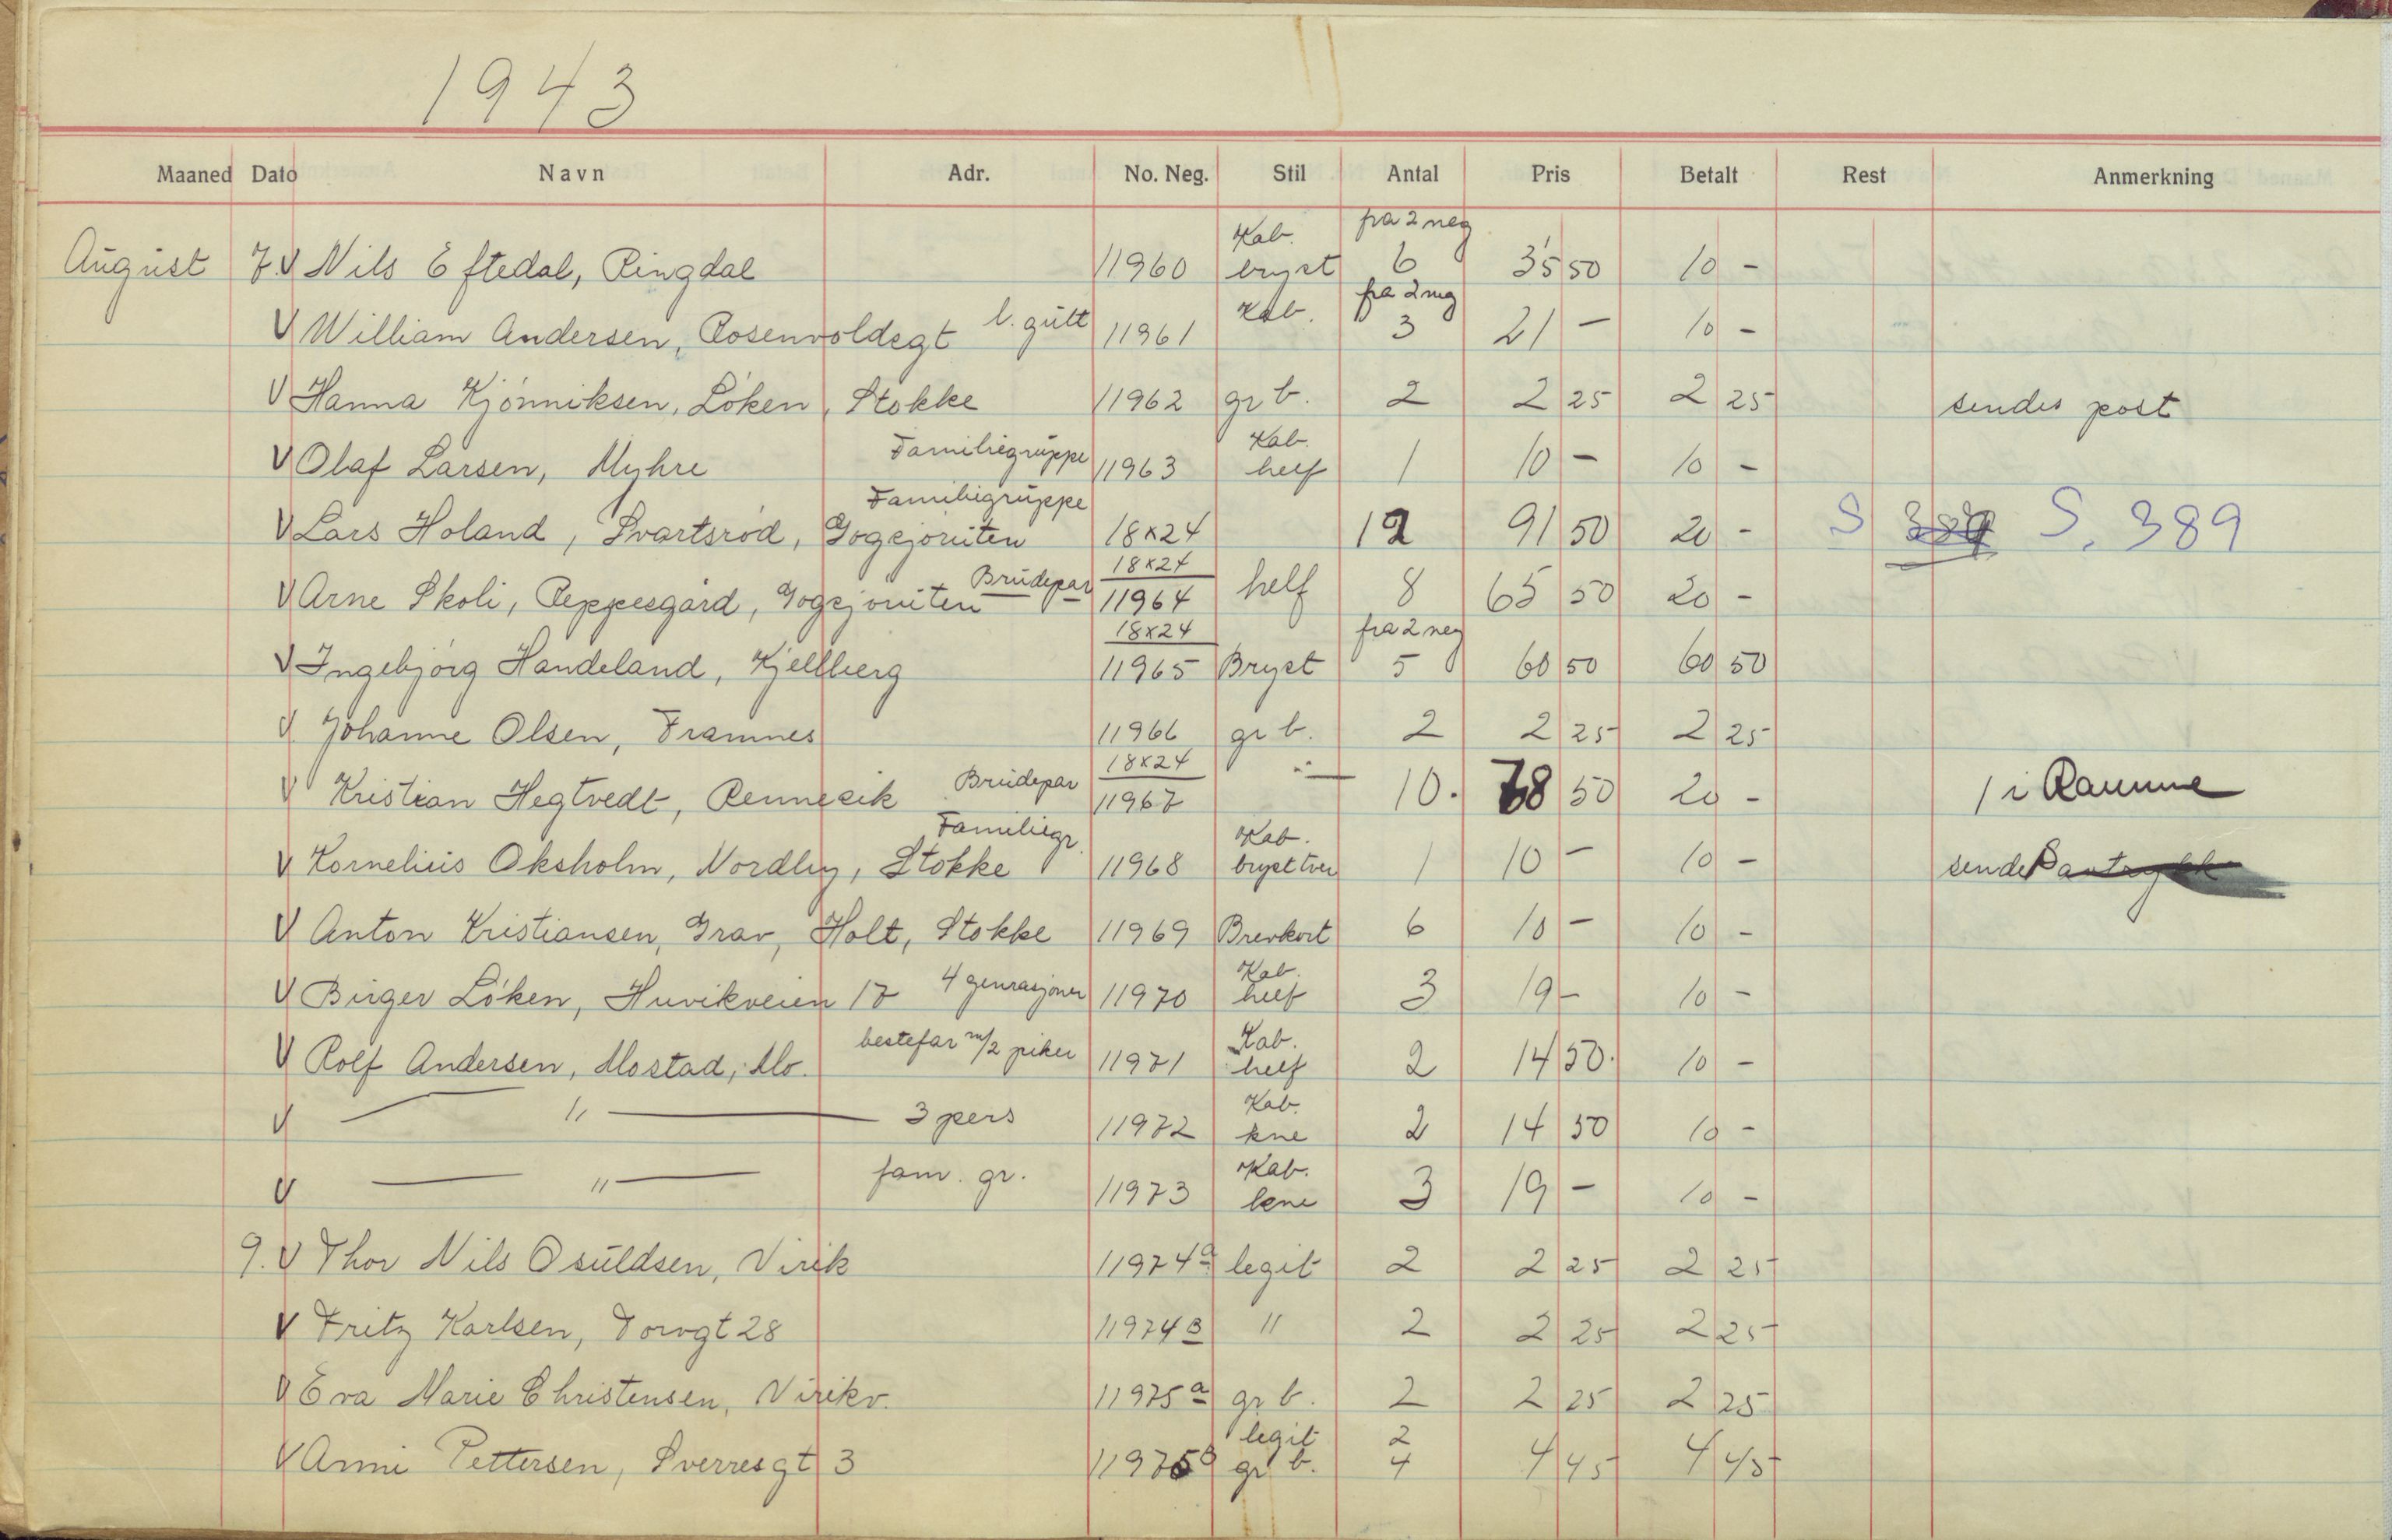 1943
Maaned Dato Navn Adr. No. Neg. Stil Antal Pris Betalt Rest Anmerkning
August 7. V Nils Eftedal, Ringdal 11960 Kab. bryst fra 2 neg 6 35 50 10 -
V William Andersen, Rosenvoldsgt l. gutt 11961 Kab. fra 2 neg 3 21 - 10 -
V Hanna Kjönniksen, Löken, Stokke 11962 gr b. 2 2 25 2 25 sendes post
V Olaf Larsen, Myhre Familiegruppe 11963 Kab. helf 1 10 - 10 -
V Lars Holand, Svartsrød, Gogsjøruten Familiegruppe 18x24 12 91 50 20 - S 389 S. 389
V Arne Skoli, Reppesgård, Gogsjøruten Brudepar 18x24 11964 helf 8 65 50 20 -
V Ingebjörg Handeland, Kjellberg 18x24 11965 Bryst fra 2 neg 5 60 50 60 50
V Johanne Olsen, Framnes 11966 gr b. 2 2 25 2 25
V Kristian Hegtvedt, Rennesik Brudepar 18x24 11967 -"- 10. 78 50 20 - 1 i Ramme
V Kornelius Oksholm, Nordby, Stokke Familiegr. 11968 Kab. bryst tver 1 10 - 10 - sendes
V Anton Kristiansen, Grav, Holt, Stokke 11969 Brevkort 6 10 - 10 -
V Birger Löken, Huvikveien 17 4 genrasjoner 11970 Kab. helf 3 19 - 10 -
V Rolf Andersen, Mostad, Mo. bestefar m/2 piker 11971 Kab. helf 2 14 50. 10 -
V — " — 3 pers 11972 Kab. kne 2 14 50 10 -
V — " — fam. gr. 11973 Kab. kne 3 19 - 10 -
9. V Thor Nils Osuldsen, Virik 11974 a legit 2 2 25 2 25
V Fritz Karlsen, Torvgt 28 11974 B " 2 2 25 2 25
V Eva Marie Christensen, Virikv. 11975 a gr b. 2 2 25 2 25
V Anni Pettersen, Sverresgt 3 11975 B legit gr b. 2 4 4 45 4 45